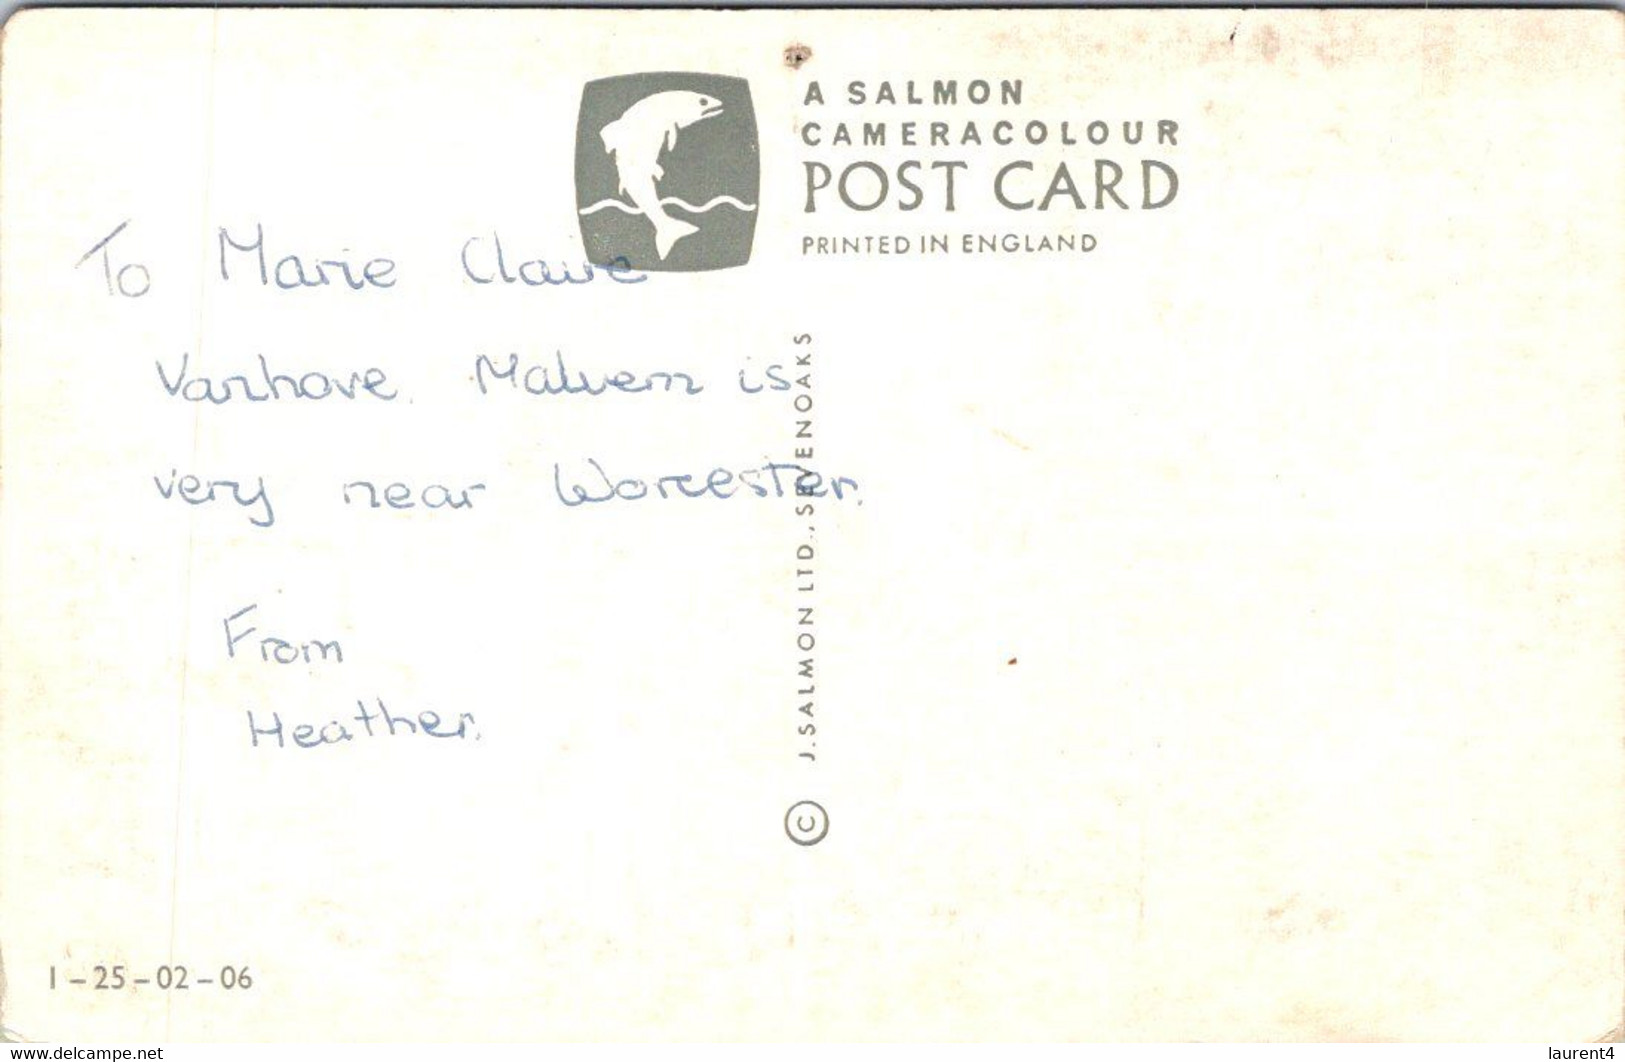 A SALMON
CAMERACOLOUR
POST CARD
PRINTED IN ENGLAND
To Marie Claire
Vanhove. Malvern is
very near Worcester.
From
Heather.
© J. SALMON LTD., SEVENOAKS
1-25-02-06
www.delcampe.net
laurent4